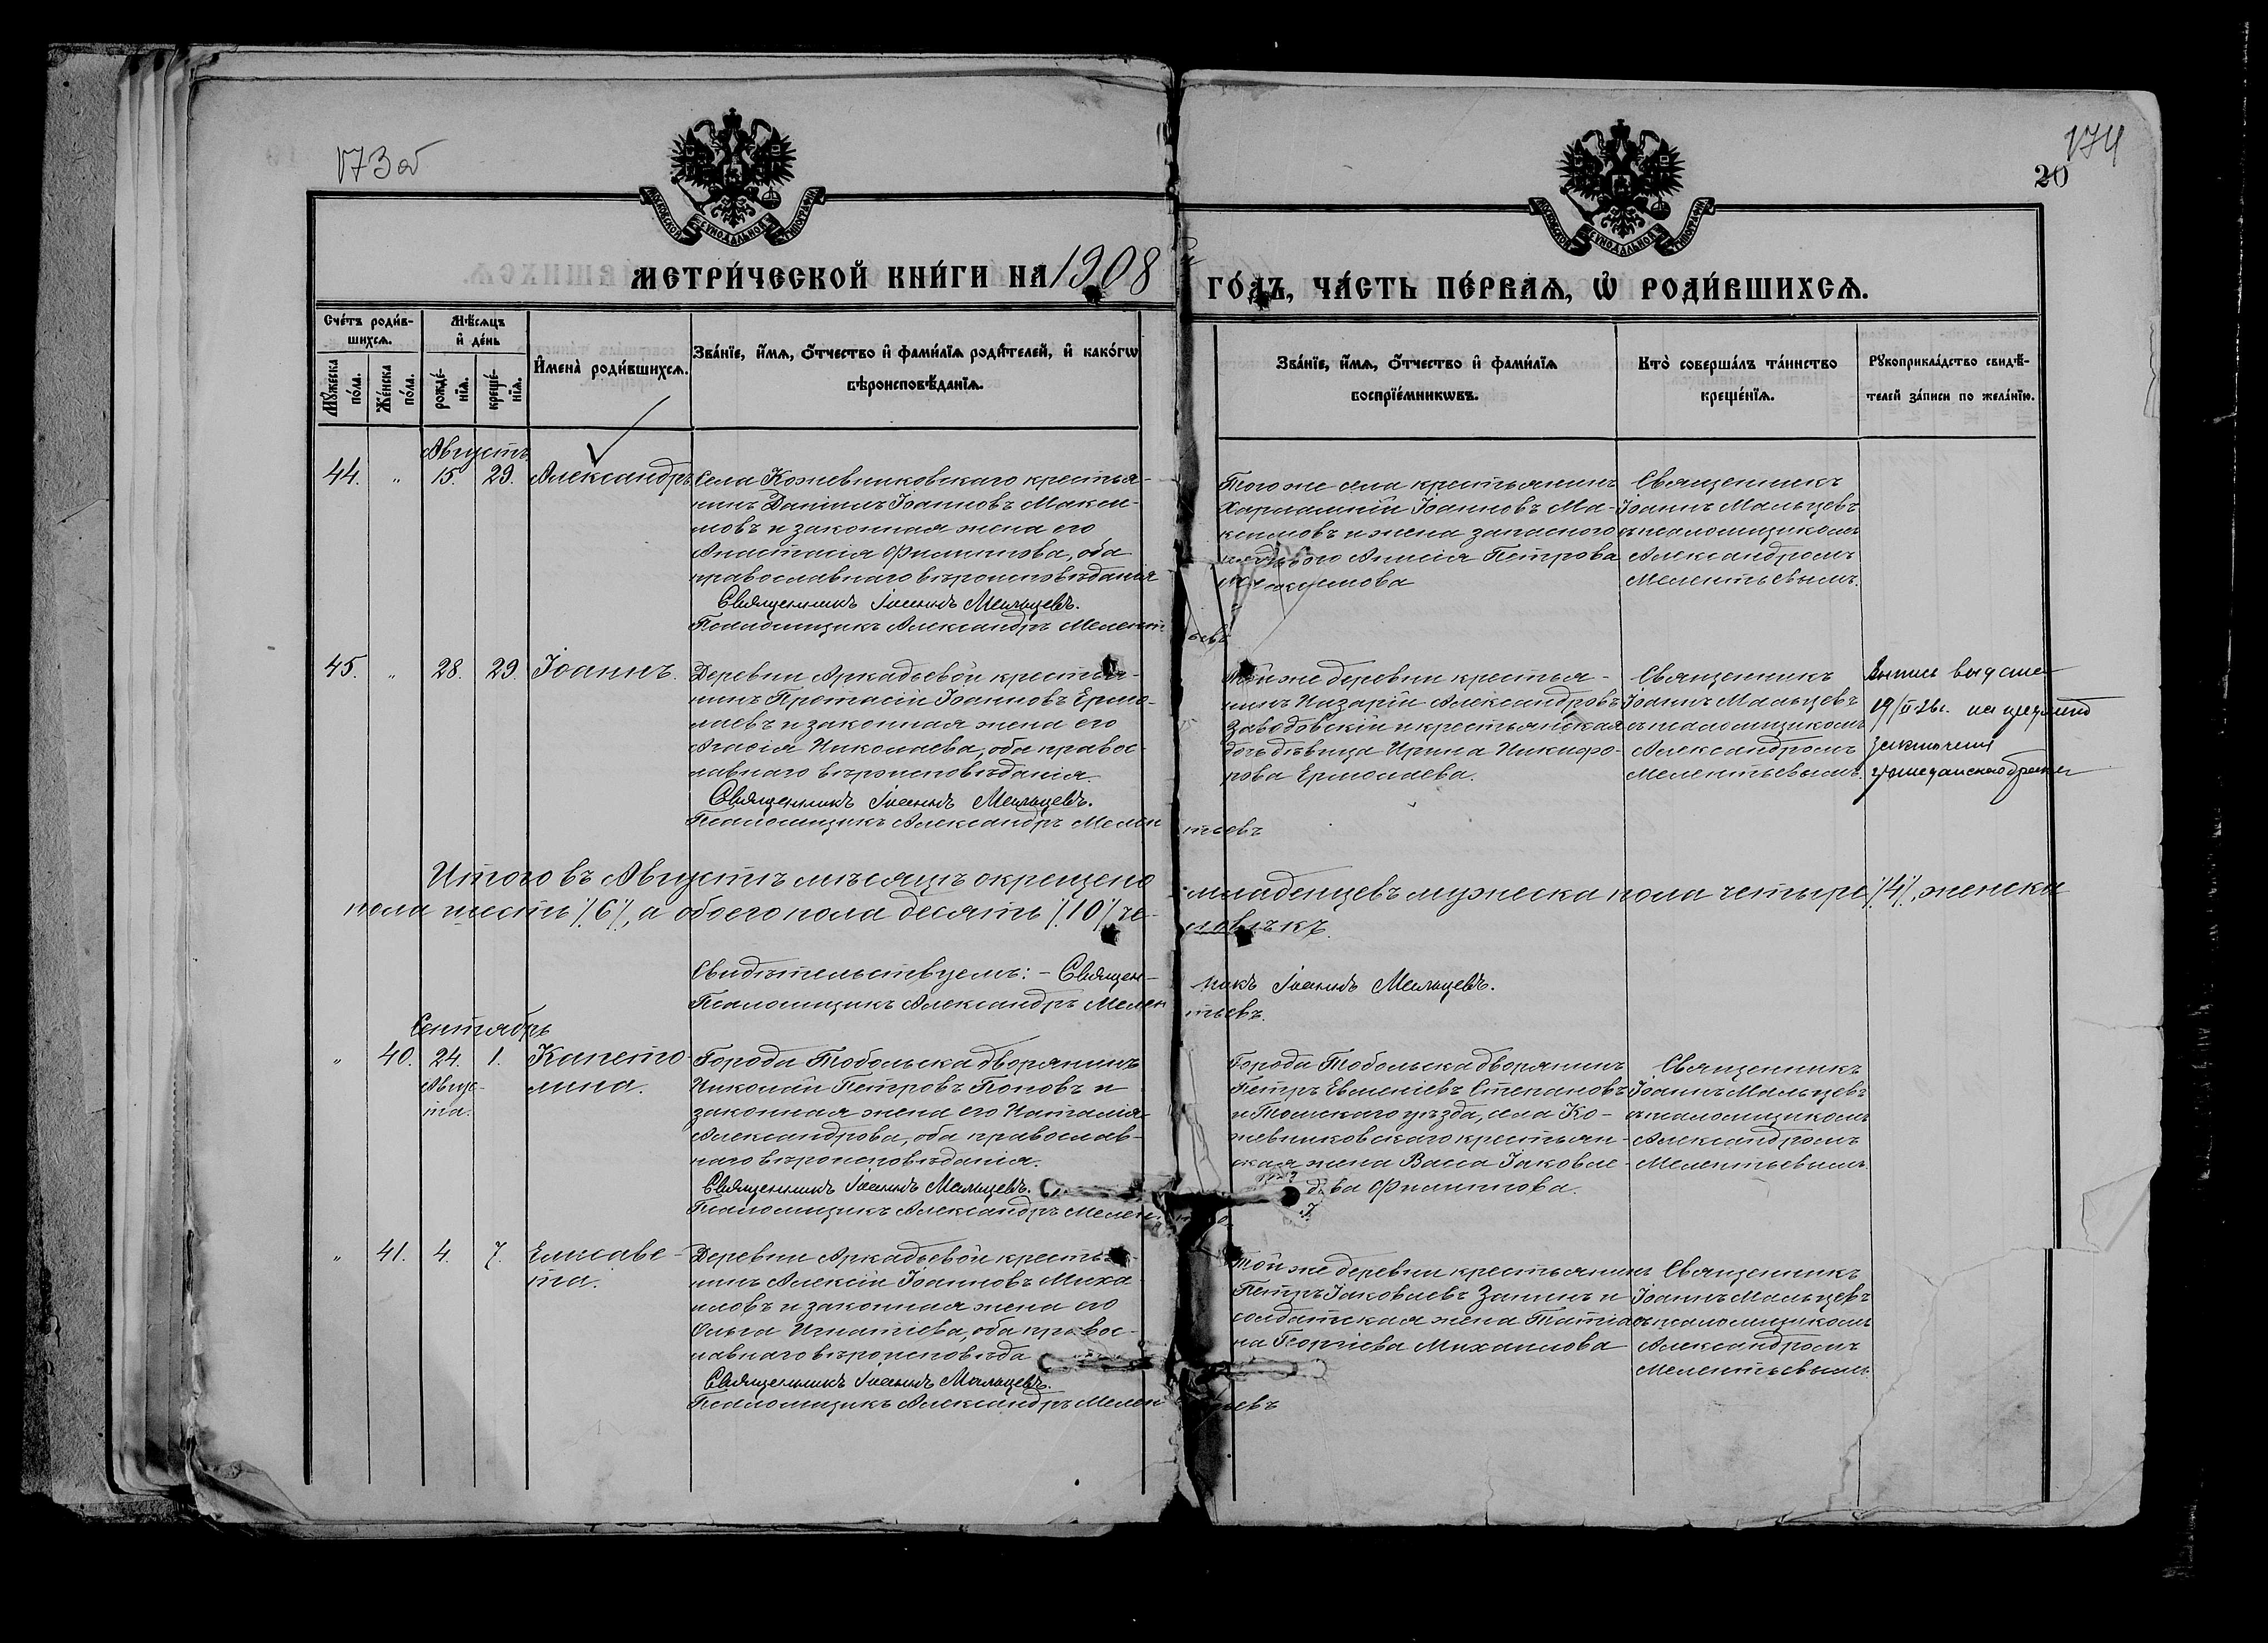 173об
174
20
МОСКОВСКОЙ СѴНОДАЛЬНОЙ ТИПОГРАФІИ
МОСКОВСКОЙ СѴНОДАЛЬНОЙ ТИПОГРАФІИ
МЕТРИ́ЧЕСКОЙ КНИ́ГИ НА 1908
ГО́ДЪ, ЧА́СТЬ ПЕ́РВАѦ, Ѡ҆ РОДИ́ВШИХСѦ.
Сче́тъ роди́в-
шихсѧ.
Мѣ́сѧцъ
и҆ де́нь
Мꙋ́жеска
по́ла.
Же́нска
по́ла.
рожде́-
нїѧ.
креще́-
нїѧ.
И҆мена̀ роди́вшихсѧ.
Зва́нїе, и҆́мѧ, ѻ҆́тчество и҆ фами́лїѧ роди́телей, и҆ како́гѡ
вѣроисповѣ́данїѧ.
Зва́нїе, и҆́мѧ, ѻ҆́тчество и҆ фами́лїѧ
воспрїе́мникѡвъ.
Кто̀ соверша́лъ та́инство
креще́нїѧ.
Рꙋкоприкла́дство свидѣ́-
телей за́писи по жела́нїю.
Августъ
44. " 15. 29. Александръ
Села Кожевниковскаго крестья-
нинъ Даніилъ Іоанновъ Макси-
мовъ и законная жена его
Анастасія Филиппова, оба
православнаго вѣроисповѣданія
Священникъ Іоаннъ Мальцевъ.
Псаломщикъ Александръ Мелентьевъ
Того же села крестьянинъ
Харлампій Іоанновъ Ма-
ксимовъ и жена запасного
Анисія Петрова
Священникъ
Іоаннъ Мальцевъ
съ псаломщикомъ
Александромъ
Мелентьевымъ.
45. " 28. 29. Іоаннъ.
Деревни Аркадьевой крестья-
нинъ Протасій Іоанновъ Ермо-
лаевъ и законная жена его
Агасія Николаева, оба правос-
лавнаго вѣроисповѣданія.
Священникъ Іоаннъ Мальцевъ.
Псаломщикъ Александръ Мелентьевъ
Той же деревни крестья-
нинъ Назарій Александровъ
Заводовскій и крестьянская
дочь дѣвица Ирина Никифо-
рова Ермолаева.
Священникъ
Іоаннъ Мальцевъ
съ псаломщикомъ
Александромъ
Мелентьевымъ.
Выпись выдана
19/II-26г. на предмет
заключения
гражданского брака
Итого въ Августѣ мѣсяцѣ окрещено младенцевъ мужеска пола четыре /4/, женска
пола шесть /6/, а обоего пола десять /10/ че-
ловѣкъ.
Свидѣтельствуемъ: - Священ-никъ Іоаннъ Мальцевъ.
Псаломщикъ Александръ Мелентьевъ.
Сентябрь
" 40. 24. 1. Капето-
Авгус-
та.
лина.
Города Тобольска дворянинъ
Николай Петровъ Поповъ и
законная жена его Наталія
Александрова, оба православ-
наго вѣроисповѣданія.
Священникъ Іоаннъ Мальцевъ.
Псаломщикъ Александръ
Города Тобольска дворянинъ
Петръ Евменіевъ Степановъ
и Томскаго уѣзда, села Ко-
жевниковскаго крестьян-
ская жена Васса Іаковле-
ва Филиппова.
Священникъ
Іоаннъ Мальцевъ
съ псаломщикомъ
Александромъ
Мелентьевымъ.
" 41. 4. 7. Елисаве-
та.
Деревни Аркадьевой крестья-
нинъ Алексій Іоанновъ Миха-
иловъ и законная жена его
Ольга Игнатіева, оба правос-
лавнаго вѣроисповѣда
Священникъ Іоаннъ Мальцевъ.
Псаломщикъ Александръ Мелентьевъ
Той же деревни крестьянинъ
Петръ Іаковлевъ Занинъ и
солдатская жена Татіа-
на Георгіева Михаилова
Священникъ
Іоаннъ Мальцевъ
съ псаломщикомъ
Александромъ
Мелентьевымъ.